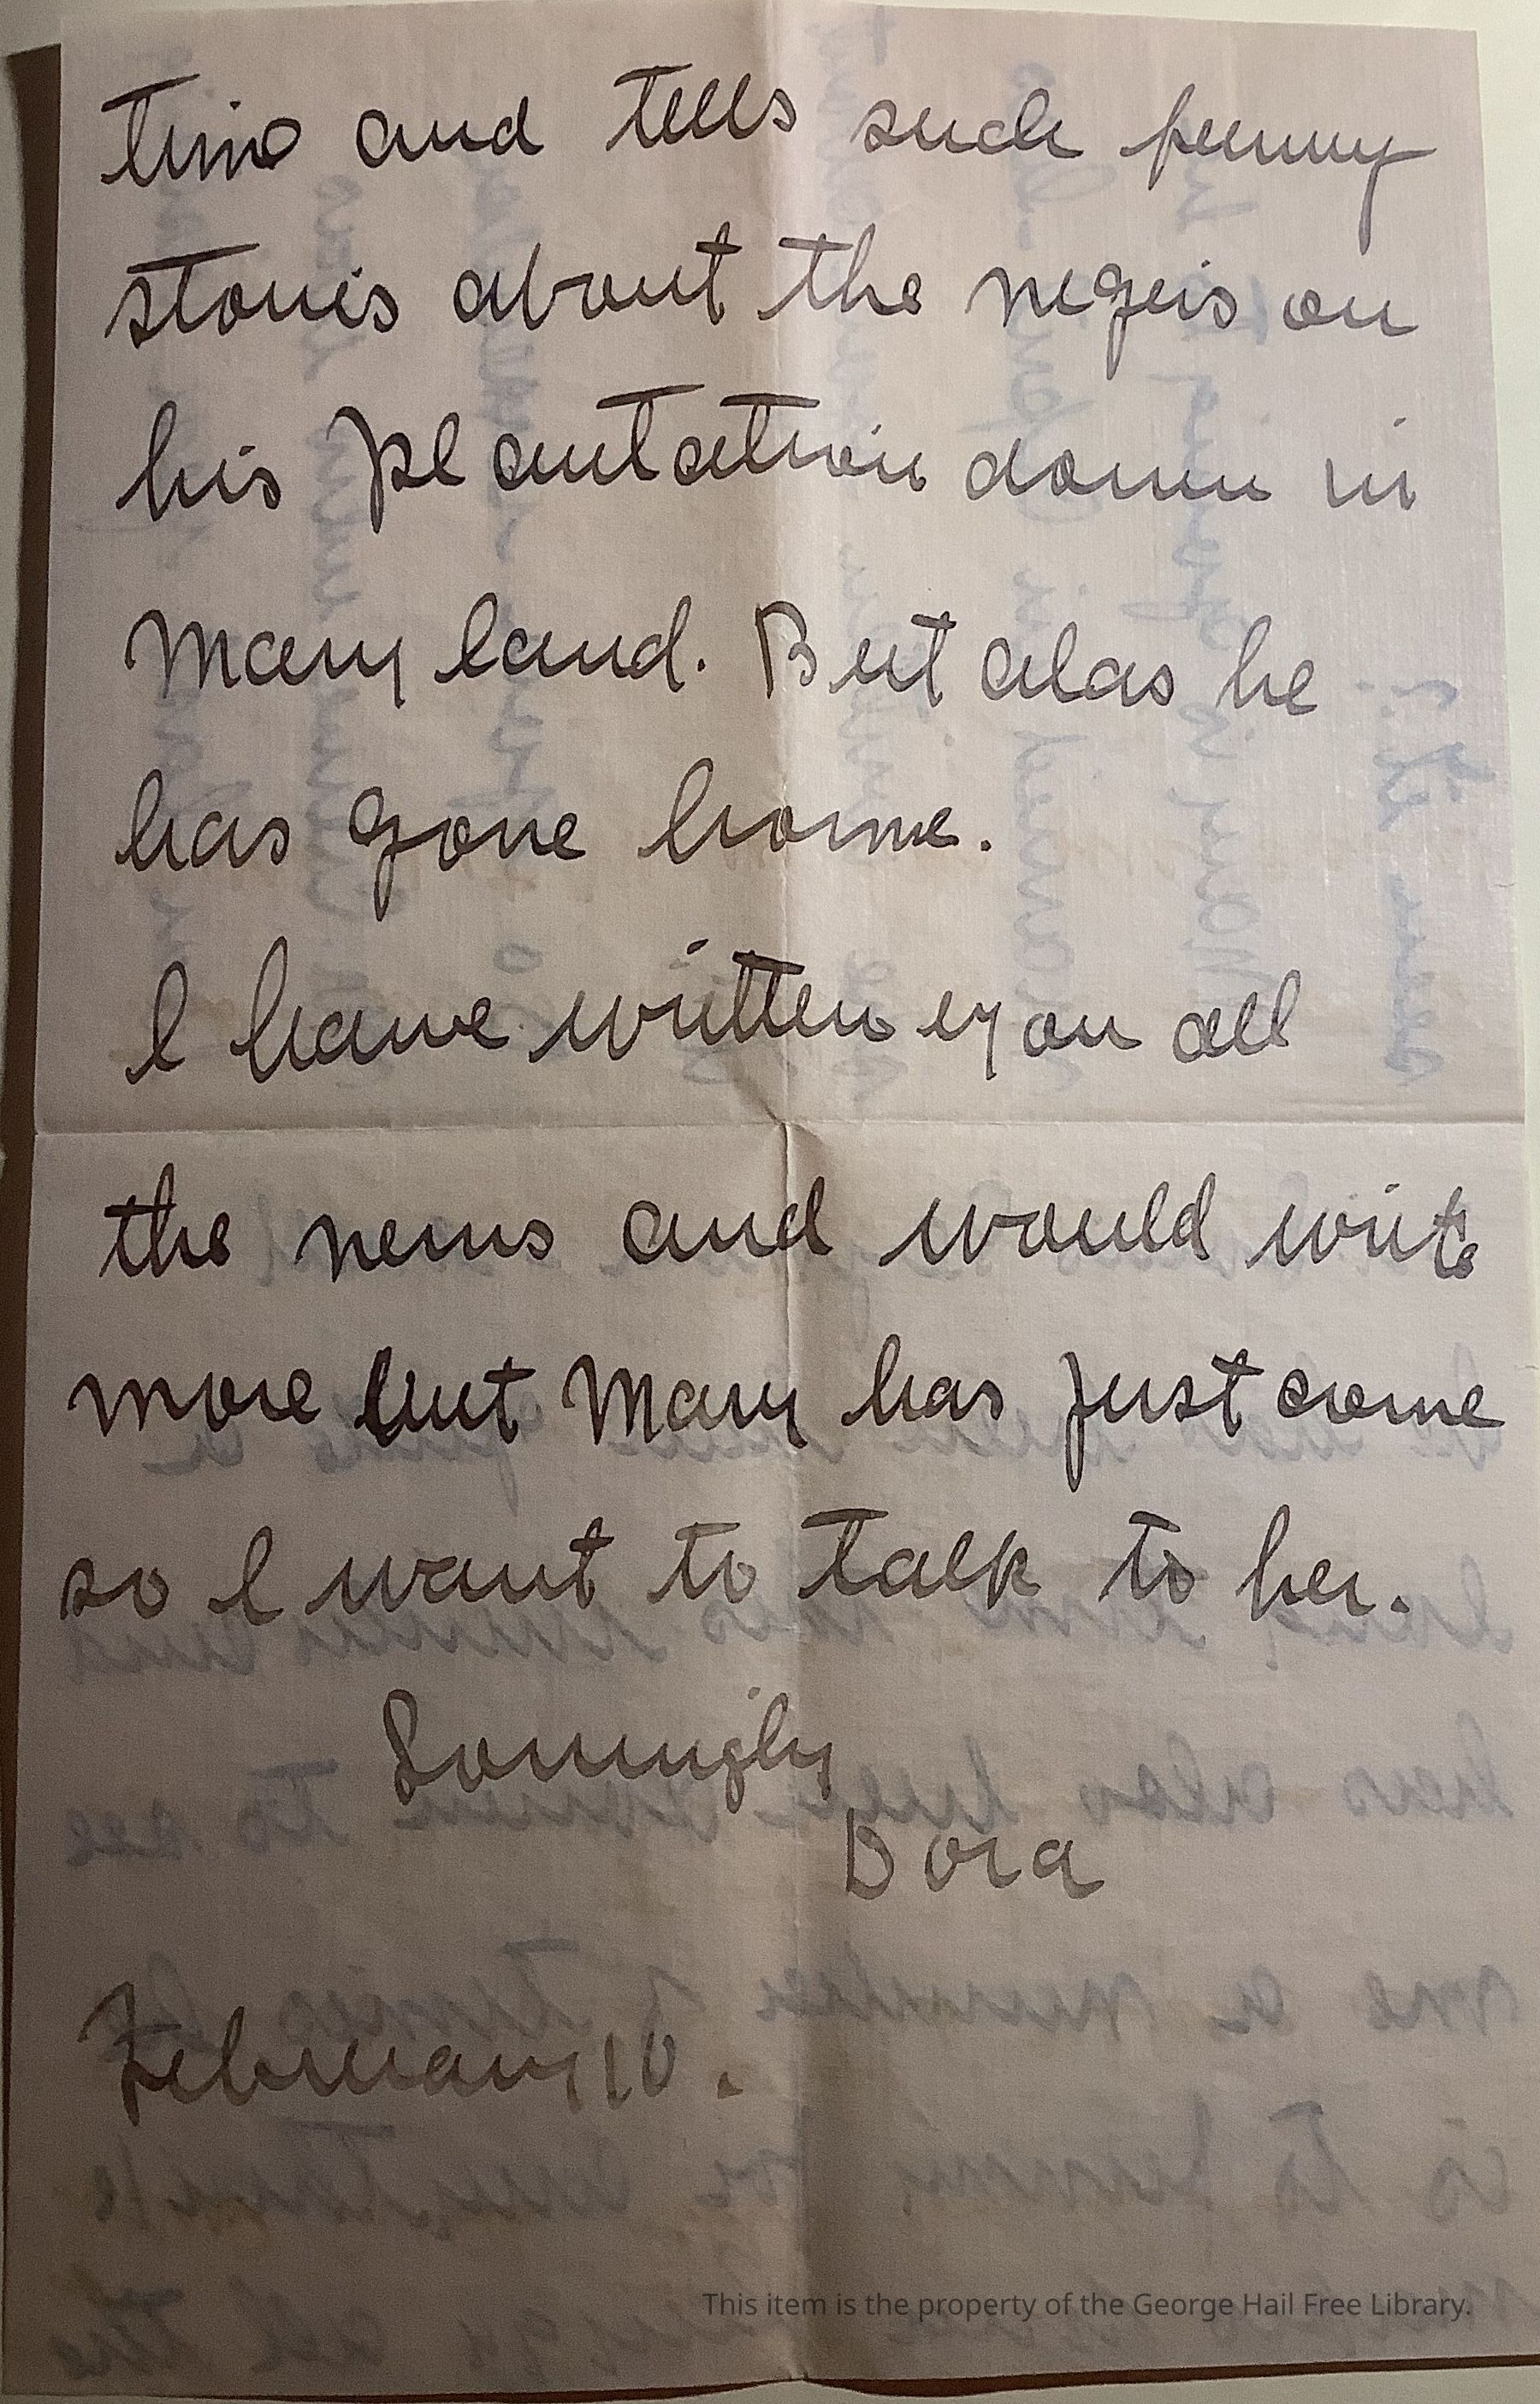 time and tells such funny
stories about the negeis on
his plantation down in
Maryland. But alas he
has gone home.
I have written you all
the news and would write
more but Mary has just come
so I want to talk to her.
Lovingly
Dora
February 10.
This item is the property of the George Hail Free Library.